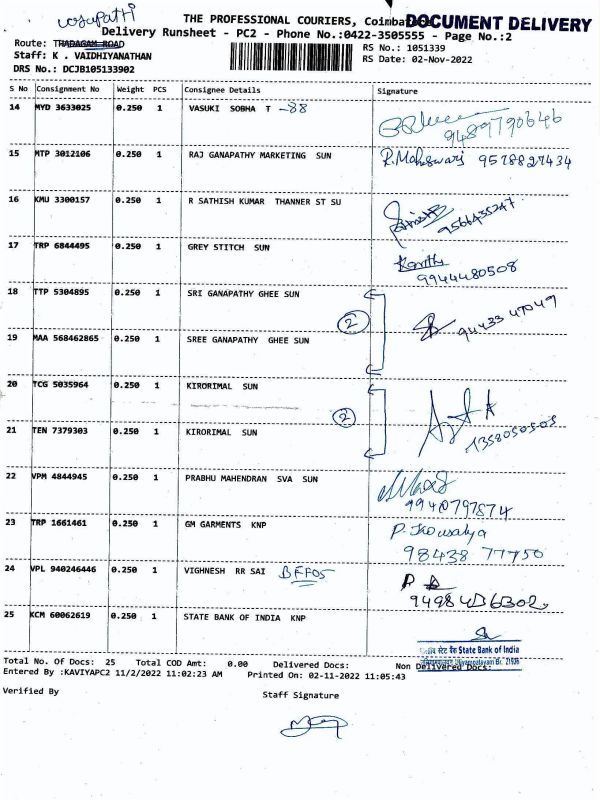 THE PROFESSIONAL COURIERS, Coimbatore
DOCUMENT DELIVERY
Delivery Runsheet - PC2 - Phone No.:0422-3505555 - Page No.:2
Route: THADAGAM ROAD
RS No.: 1051339
Staff: K . VAIDHIYANATHAN
RS Date: 02-Nov-2022
DRS No.: DCJB105133902
S No Consignment No Weight PCS Consignee Details Signature
14 MYD 3633025 0.250 1 VASUKI SOBHA T -88
9489790646
15 MTP 3012106 0.250 1 RAJ GANAPATHY MARKETING SUN R.Maheswari 9578827434
16 KMU 3300157 0.250 1 R SATHISH KUMAR THANNER ST SU
9566435247
17 TRP 6844495 0.250 1 GREY STITCH SUN
9944480508
18 TTP 5304895 0.250 1 SRI GANAPATHY GHEE SUN
2 94433 47049
19 MAA 568462865 0.250 1 SREE GANAPATHY GHEE SUN
20 TCG 5035964 0.250 1 KIRORIMAL SUN
2
21 TEN 7379303 0.250 1 KIRORIMAL SUN
22 VPM 4844945 0.250 1 PRABHU MAHENDRAN SVA SUN
9940797874
23 TRP 1661461 0.250 1 GM GARMENTS KNP P. Kousalya
98438 77750
24 VPL 940246446 0.250 1 VIGHNESH RR SAI BFF05
25 KCM 60062619 0.250 1 STATE BANK OF INDIA KNP
भारतीय स्टेट बैंक State Bank of India
Total No. Of Docs: 25 Total COD Amt: 0.00 Delivered Docs: Non Delivered Docs:
Entered By :KAVIYAPC2 11/2/2022 11:02:23 AM Printed On: 02-11-2022 11:05:43
Verified By Staff Signature